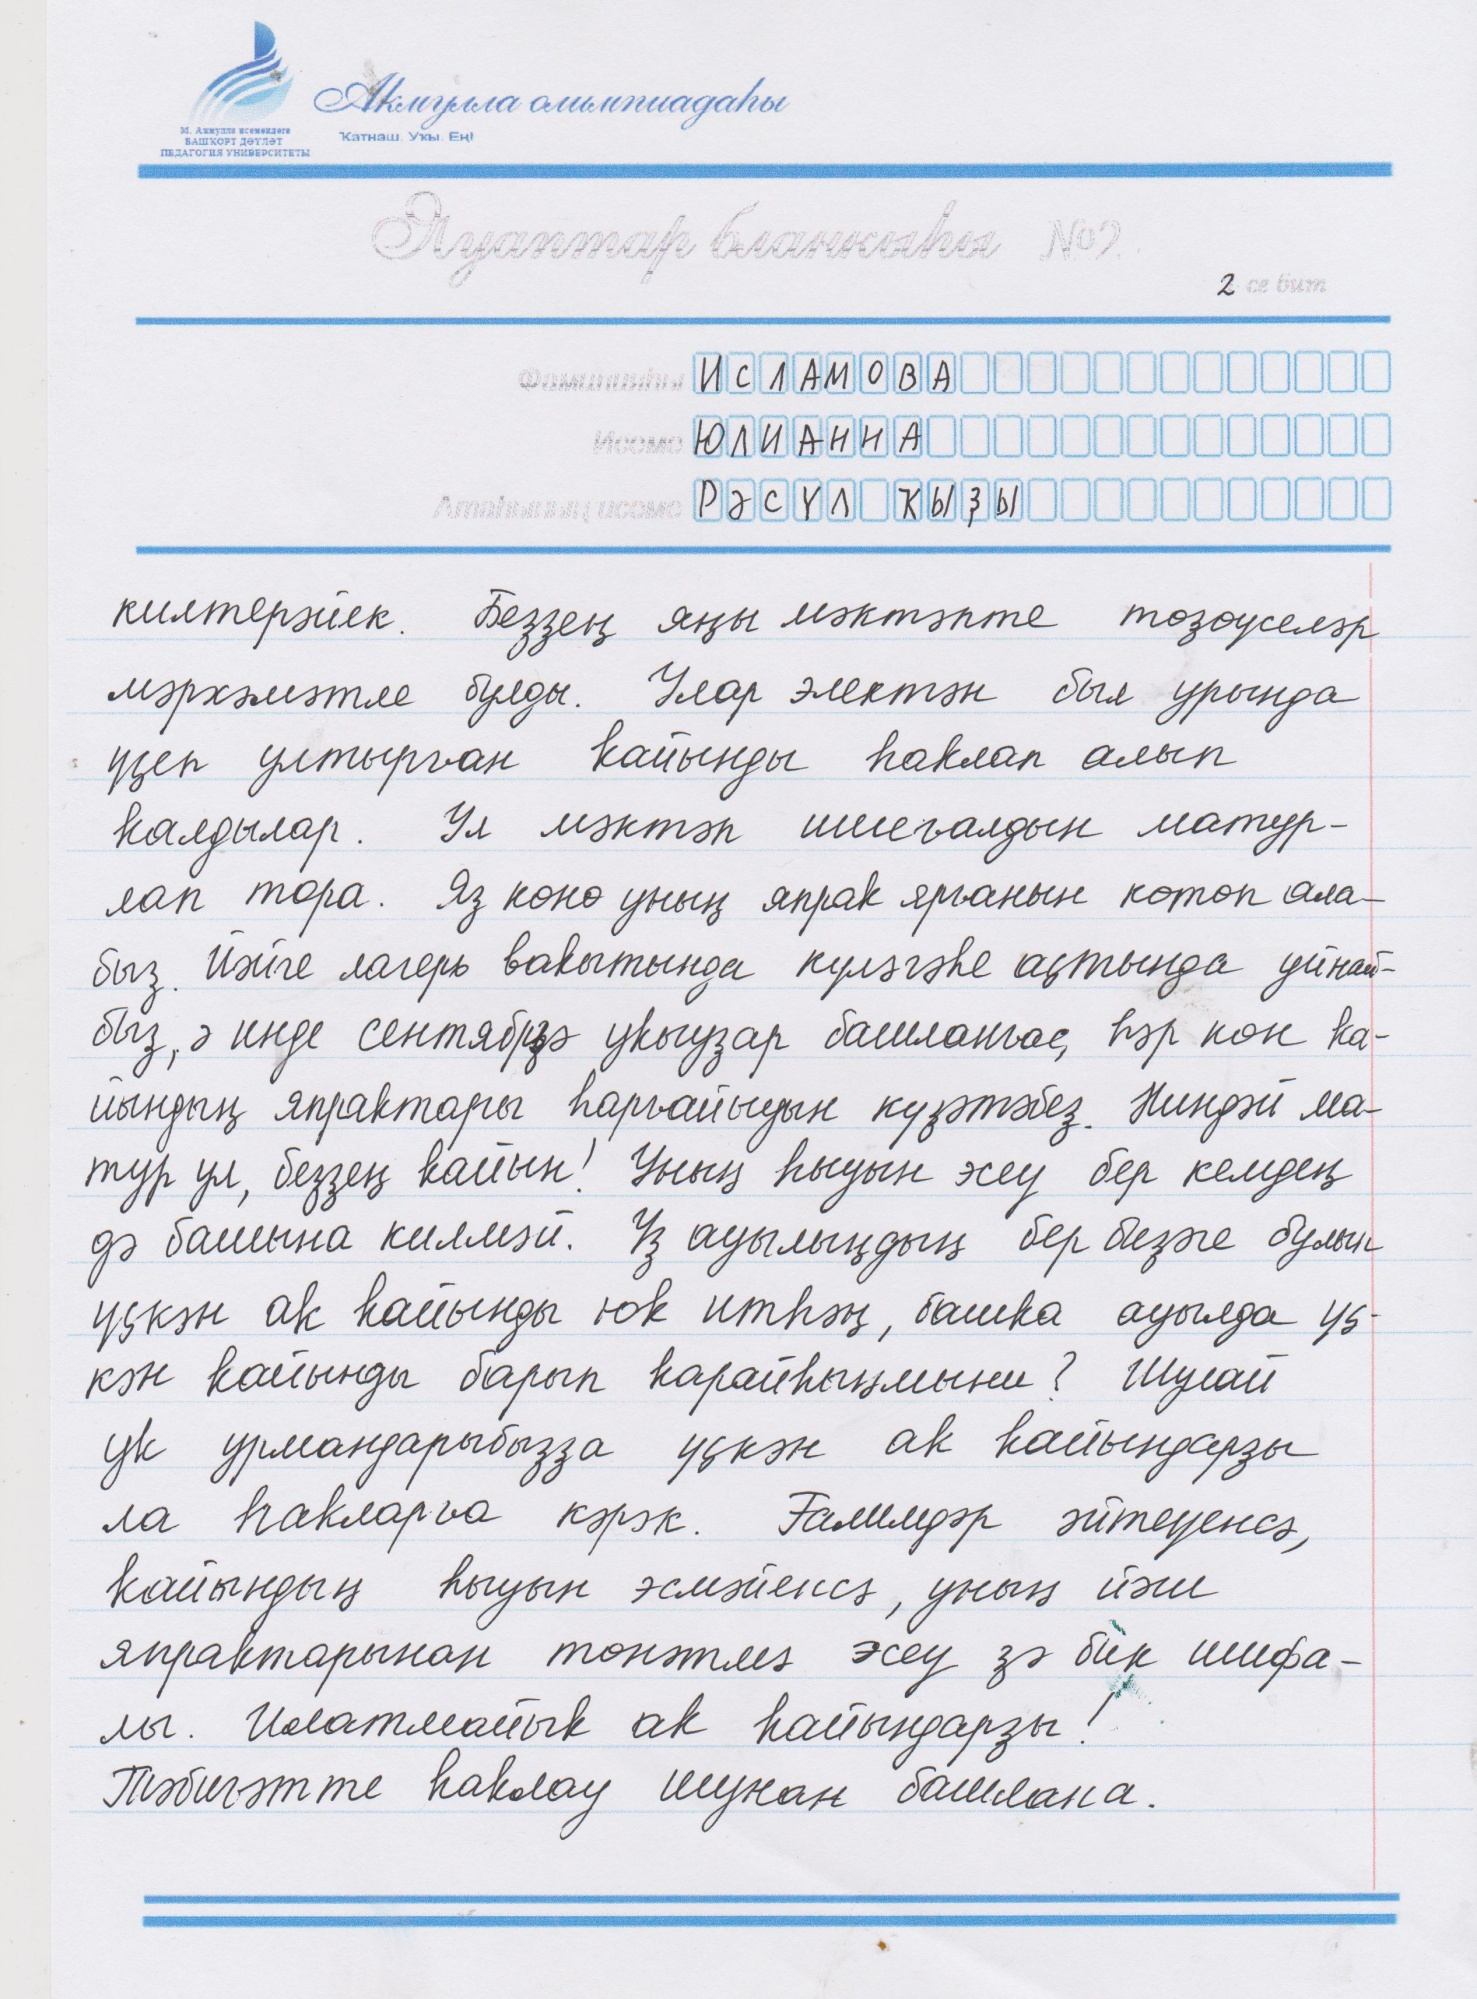 Акмулла олимпиадаһы
Ҡатнаш. Уҡы. Ең!
М. Акмулла исемендәге
БАШҠОРТ ДӘҮЛӘТ
ПЕДАГОГИЯ УНИВЕРСИТЕТЫ
Яуаптар бланкыһы №2
2 се бит
Фамилияһы ИСЛАМОВА
Исеме ЮЛИАННА
Атаһының исеме РӘСҮЛ ҠЫҘЫ
килтерәйек. Беҙҙең яңы мәктәпте төҙөүселәр
мәрхәмәтле булды. Улар электән был урында
үҫеп ултырған ҡайынды һаҡлап алып
ҡалдылар. Ул мәктәп ишеғалдын матур-
лап тора. Яҙ көнө уның япраҡ ярғанын көтөп ала-
быҙ. Йәйге лагерь ваҡытында күләгәһе аҫтында уйнай-
быҙ, ә инде сентябрҙә уҡыуҙар башланғас, һәр көн ҡа-
йындың япраҡтары һарғайыуын күҙәтәбеҙ. Ниндәй ма-
тур ул, беҙҙең ҡайын! Уның һыуын эсеү бер кемдең
дә башына килмәй. Үҙ ауылыңдың бер биҙәге булып
үҫкән аҡ ҡайынды юҡ итһәң, башҡа ауылда үҫ-
кән ҡайынды барып ҡарайһыңмыни? Шулай
уҡ урмандарыбыҙҙа үҫкән аҡ ҡайындарҙы
ла һаҡларға кәрәк. Ғалимдәр әйтеүенсә,
ҡайындың һыуын эсмәйенсә, уның йәш
япраҡтарынан төнәтмә эсеү ҙә бик шифа-
лы. Илатмайыҡ аҡ ҡайындарҙы!
Тәбиғәтте һаҡлау шунан башлана.